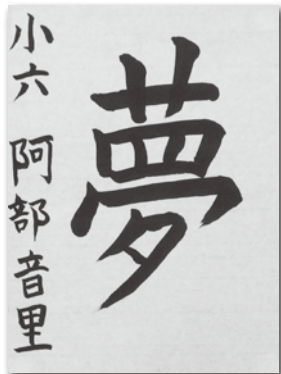 夢
小六 阿部音里